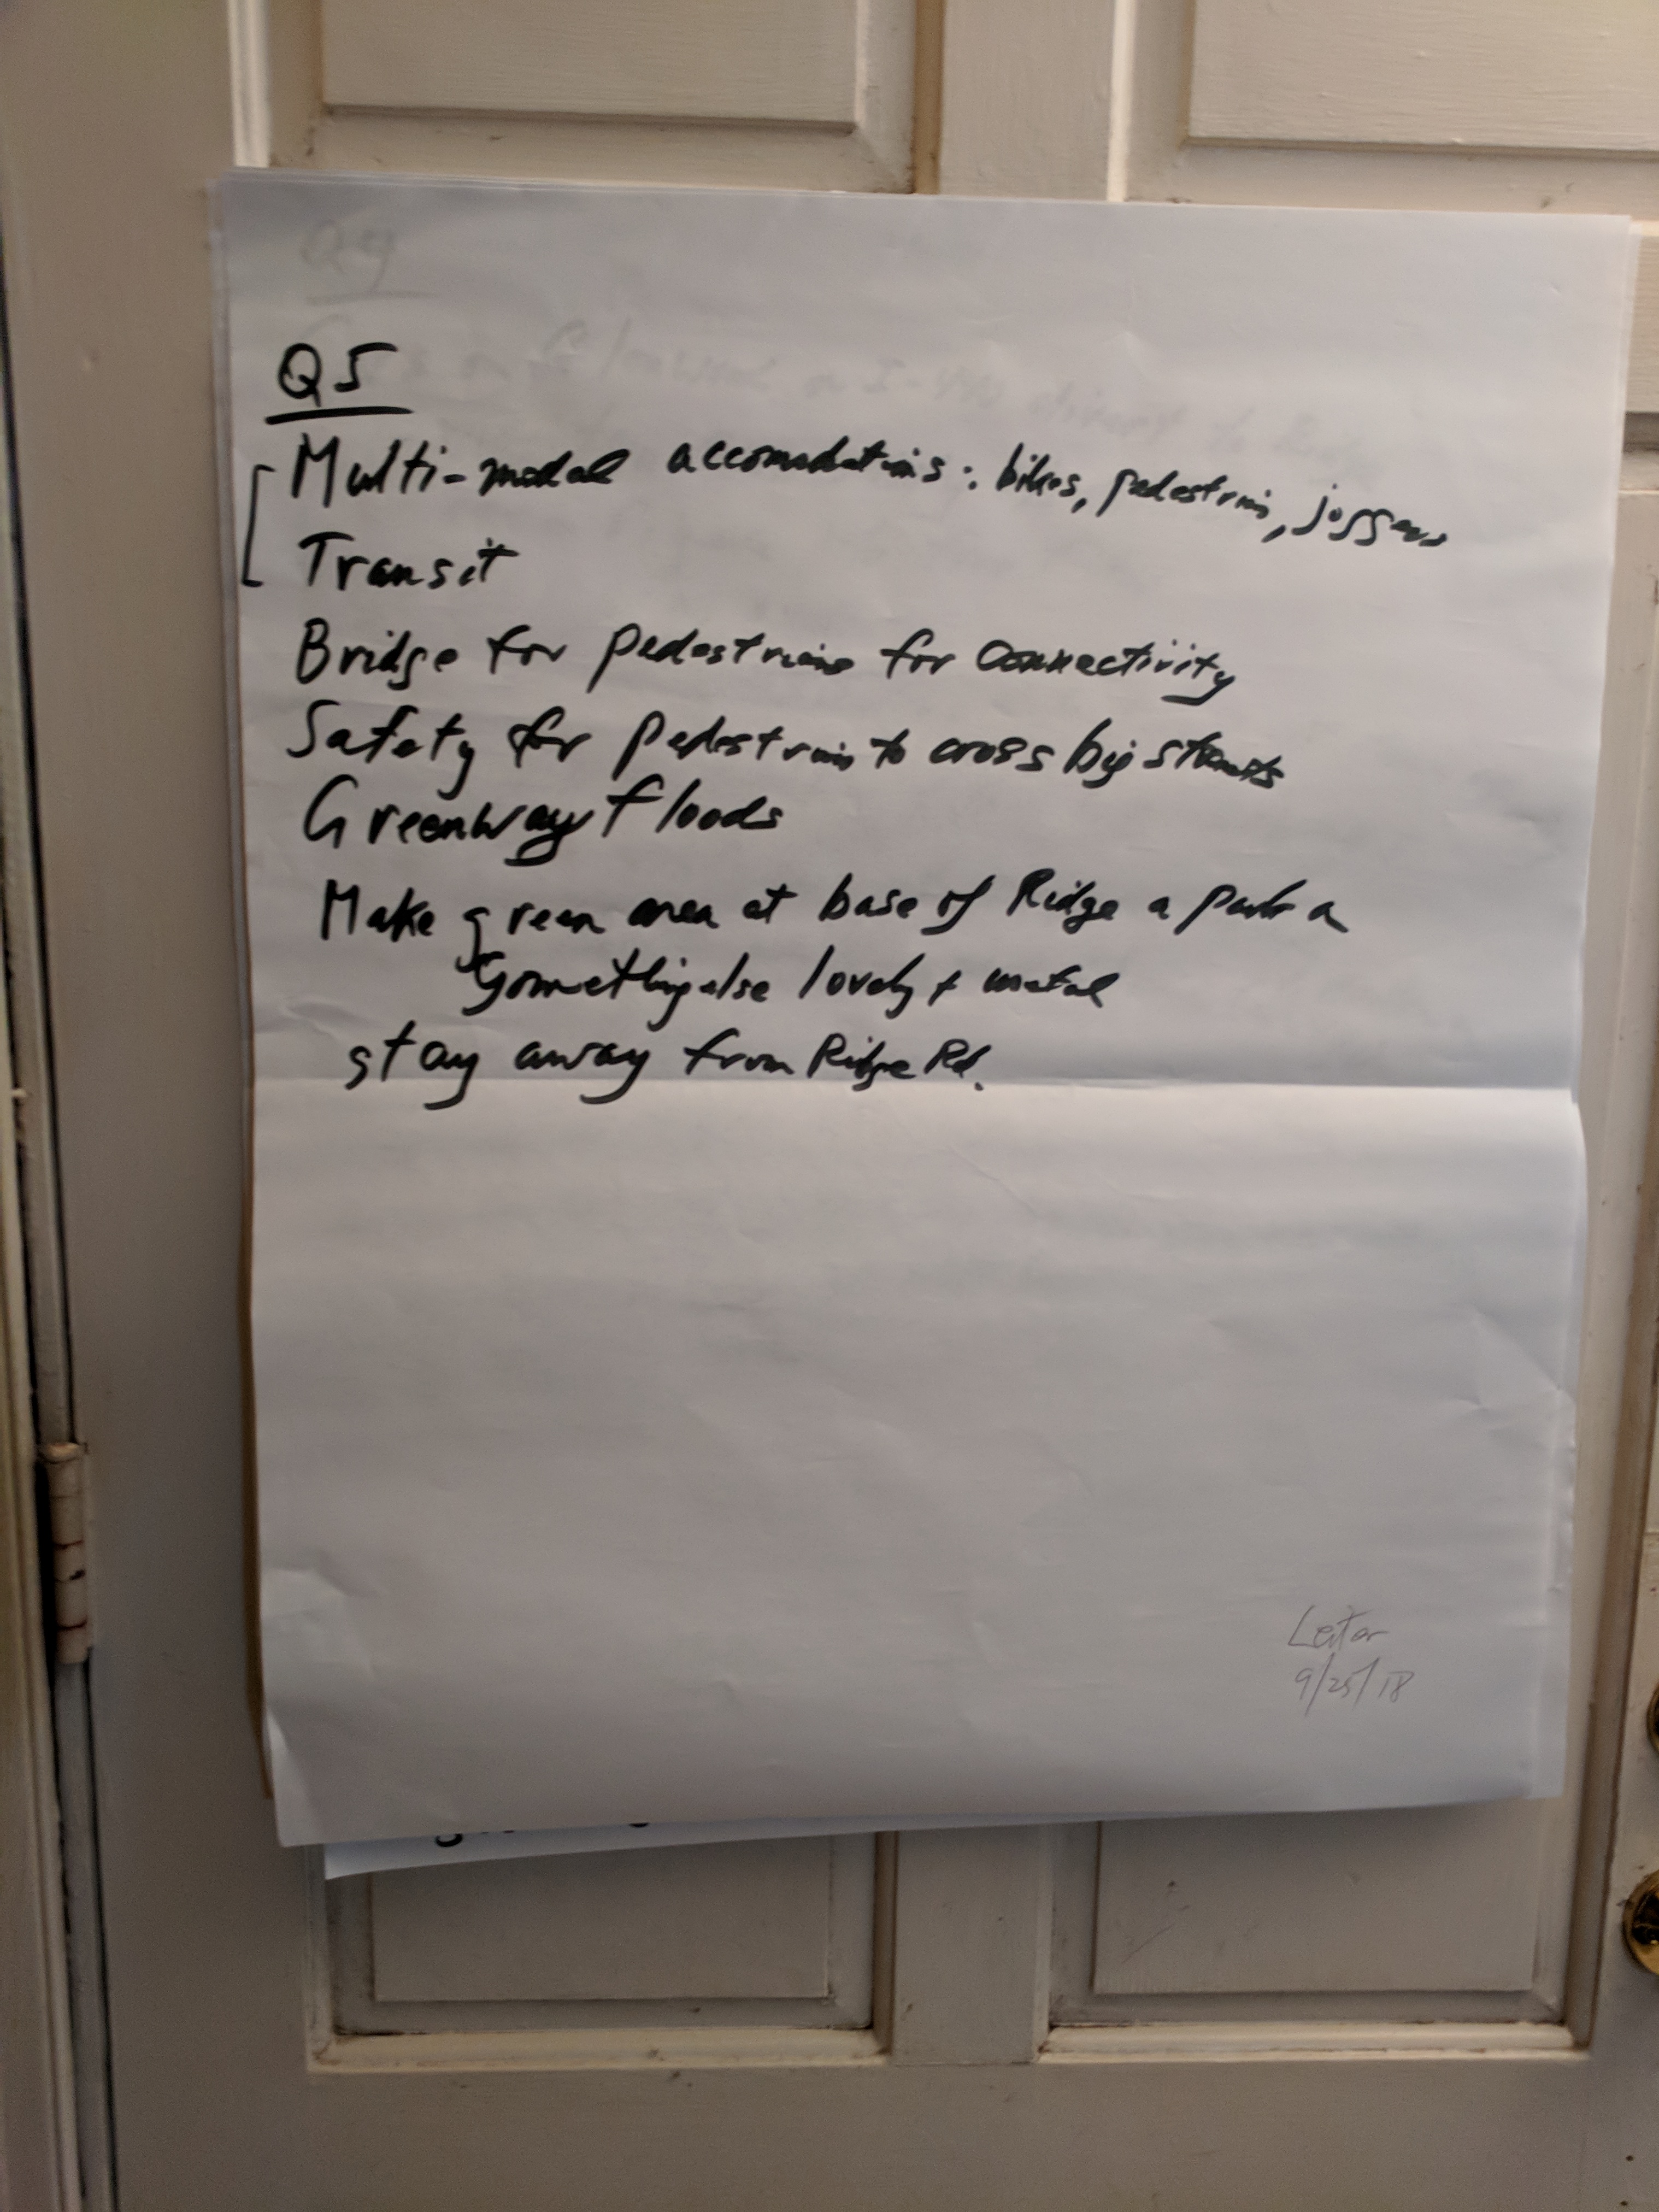 Q5
Multi-modal accomodations: bikes, pedestrians, joggers
Transit
Bridge for pedestrians for connectivity
Safety for pedestrians to cross big streets
Greenway floods
Make green area at base of Ridge a park or
something else lovely +
stay away from Ridge Rd.
9/25/18